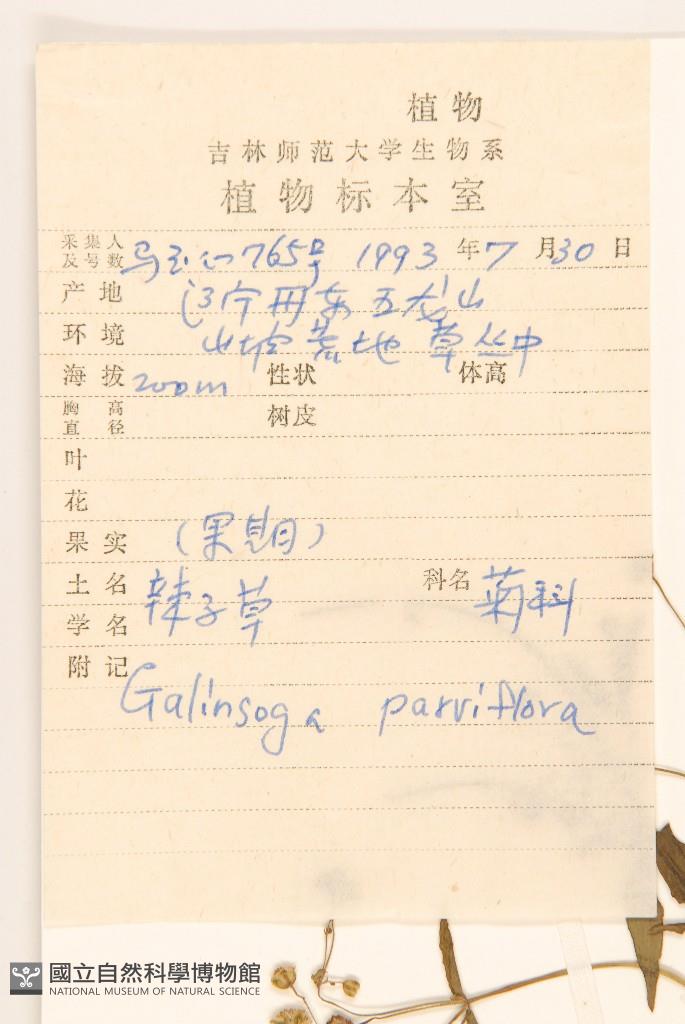 植物
吉林师范大学生物系
植物标本室
采集人及号数 马玉心765号 1993年7月30日
产地 辽宁丹东五龙山
环境 山坡荒地草丛中
海拔 200m 性状 体高
胸高直径 树皮
叶
花
果实 (果期)
土名 辣子草 科名 菊科
学名
附记 Galinsoga parviflora
國立自然科學博物館
NATIONAL MUSEUM OF NATURAL SCIENCE